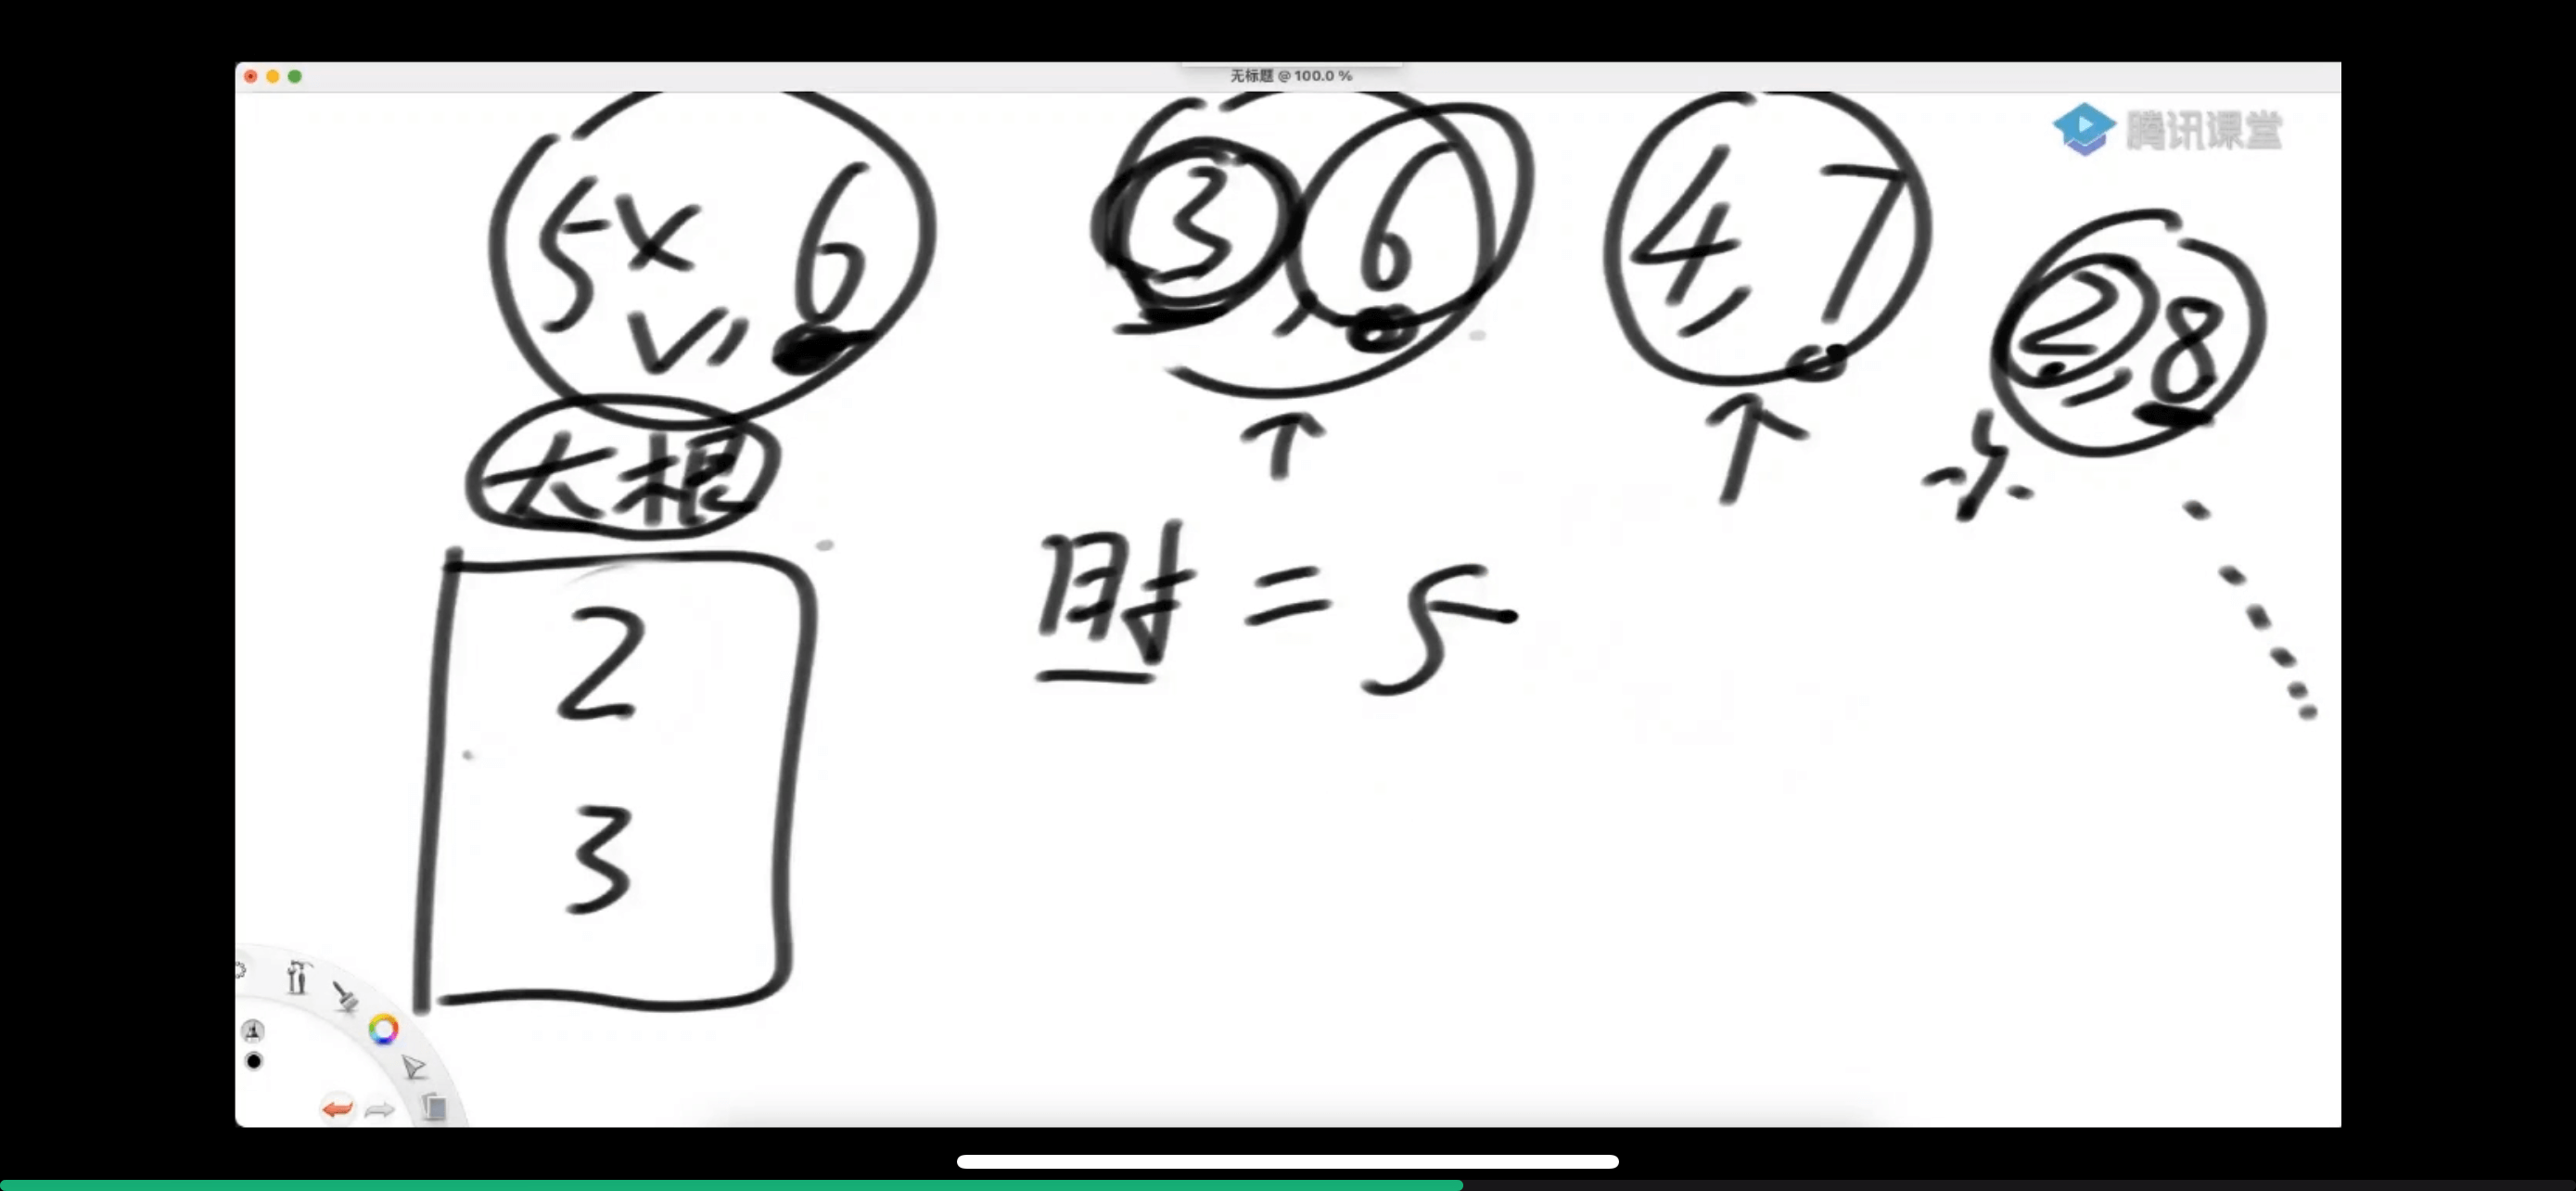 无标题 @ 100.0 %
腾讯课堂
5 x 6
3, 6
4, 7
2, 8
大根
时 = 5
2
3